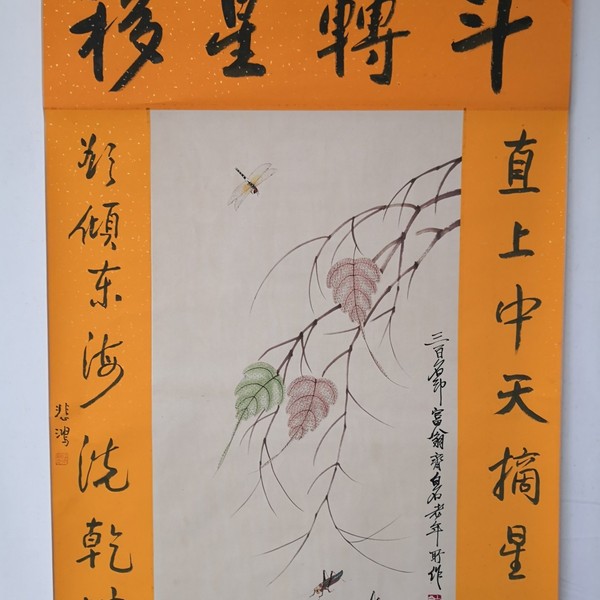 斗轉星移
直上中天摘星
欲傾东海洗乾
悲鴻
三百石印富翁齊白石老年所作